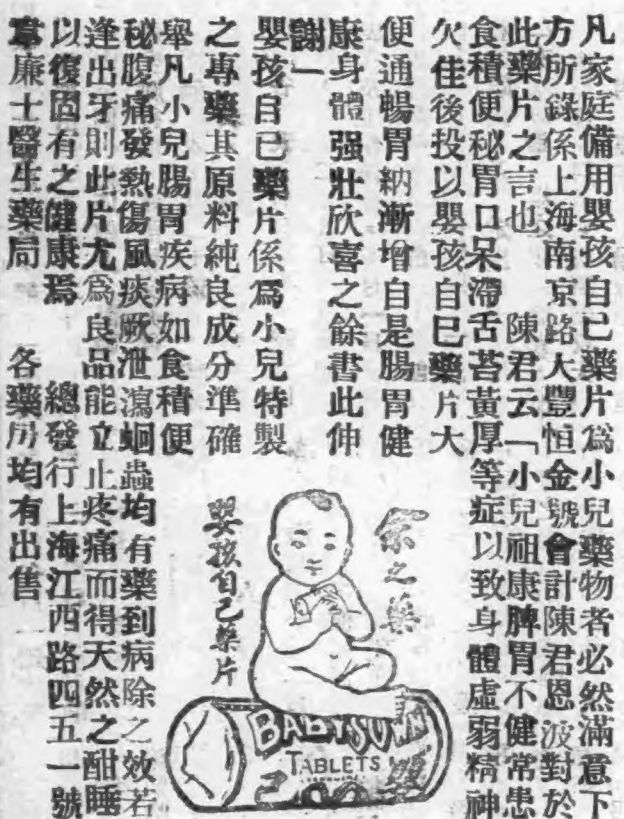 凡家庭備用嬰孩自己藥片爲小兒藥物者必然滿意下
方所錄係上海南京路大豐恒金號會計陳君恩波對於
此藥片之言也　陳君云「小兒祖康脾胃不健常患
食積便秘胃口呆滯舌苔黃厚等症以致身體虛弱精神
欠佳後投以嬰孩自已藥片大
便通暢胃納漸增自是腸胃健
康身體强壯欣喜之餘書此伸
謝」
嬰孩自已藥片係爲小兒特製
之專藥其原料純良成分準確
舉凡小兒腸胃疾病如食積便
秘腹痛發熱傷風痰厥泄瀉蛔蟲均有藥到病除之效若
逢出牙則此片尤爲良品能立止疼痛而得天然之酣睡
以復固有之健康焉　總發行上海江西路四五一號
韋廉士醫生藥局　各藥房均有出售
余之藥
嬰孩自己藥片
BABY'S OWN
TABLETS